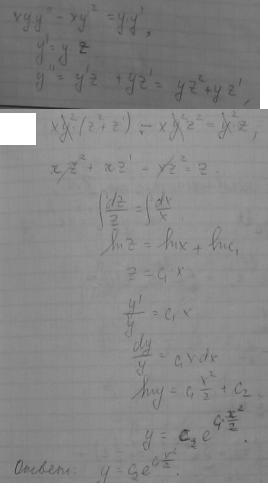 xyy'' - xy'² = y·y',
y' = y z
y'' = y'z + yz' = yz² + yz',
xy²(z² + z') - xy²z² = y²z,
xz² + xz' - xz² = z.
∫dz/z = ∫dx/x
ln z = ln x + ln c₁
z = c₁·x
y'/y = c₁x
dy/y = c₁xdx
ln y = c₁ x²/2 + c₂
y = c₂ e^(c₁ x²/2).
Ответ: y = c₂e^(c₁ x²/2).